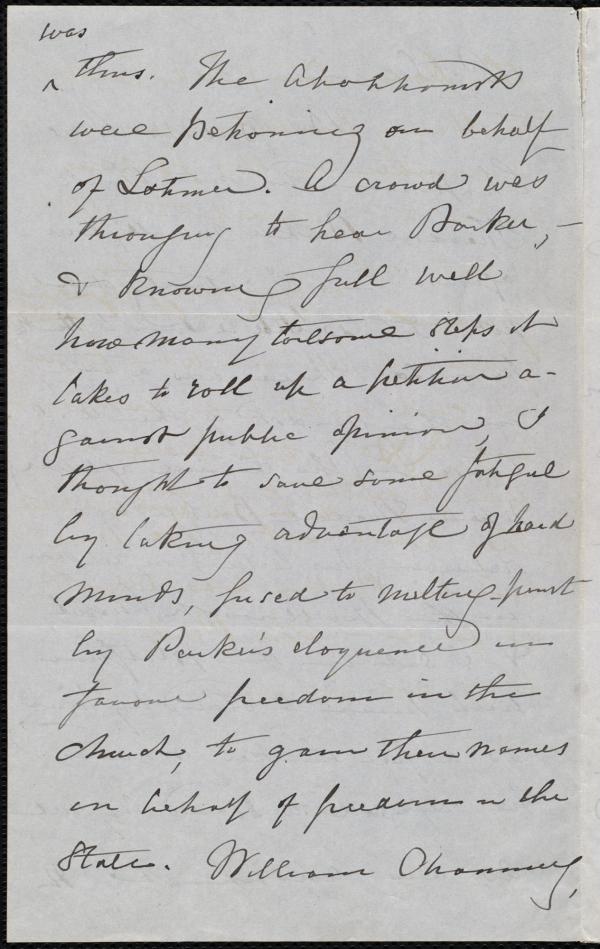 was
^ thus. The Abolitionists
were petitioning on behalf
of Latimer. A crowd was
thronging to hear Parker, –
& knowing full well
how many toilsome steps it
takes to roll up a petition a-
gainst public opinion, I
thought to save some fatigue
by taking advantage of hard
minds, fused to melting-point
by Parker's eloquence in
favour freedom in the
church, to gain their names
in behalf of freedom in the
State. William Channing,